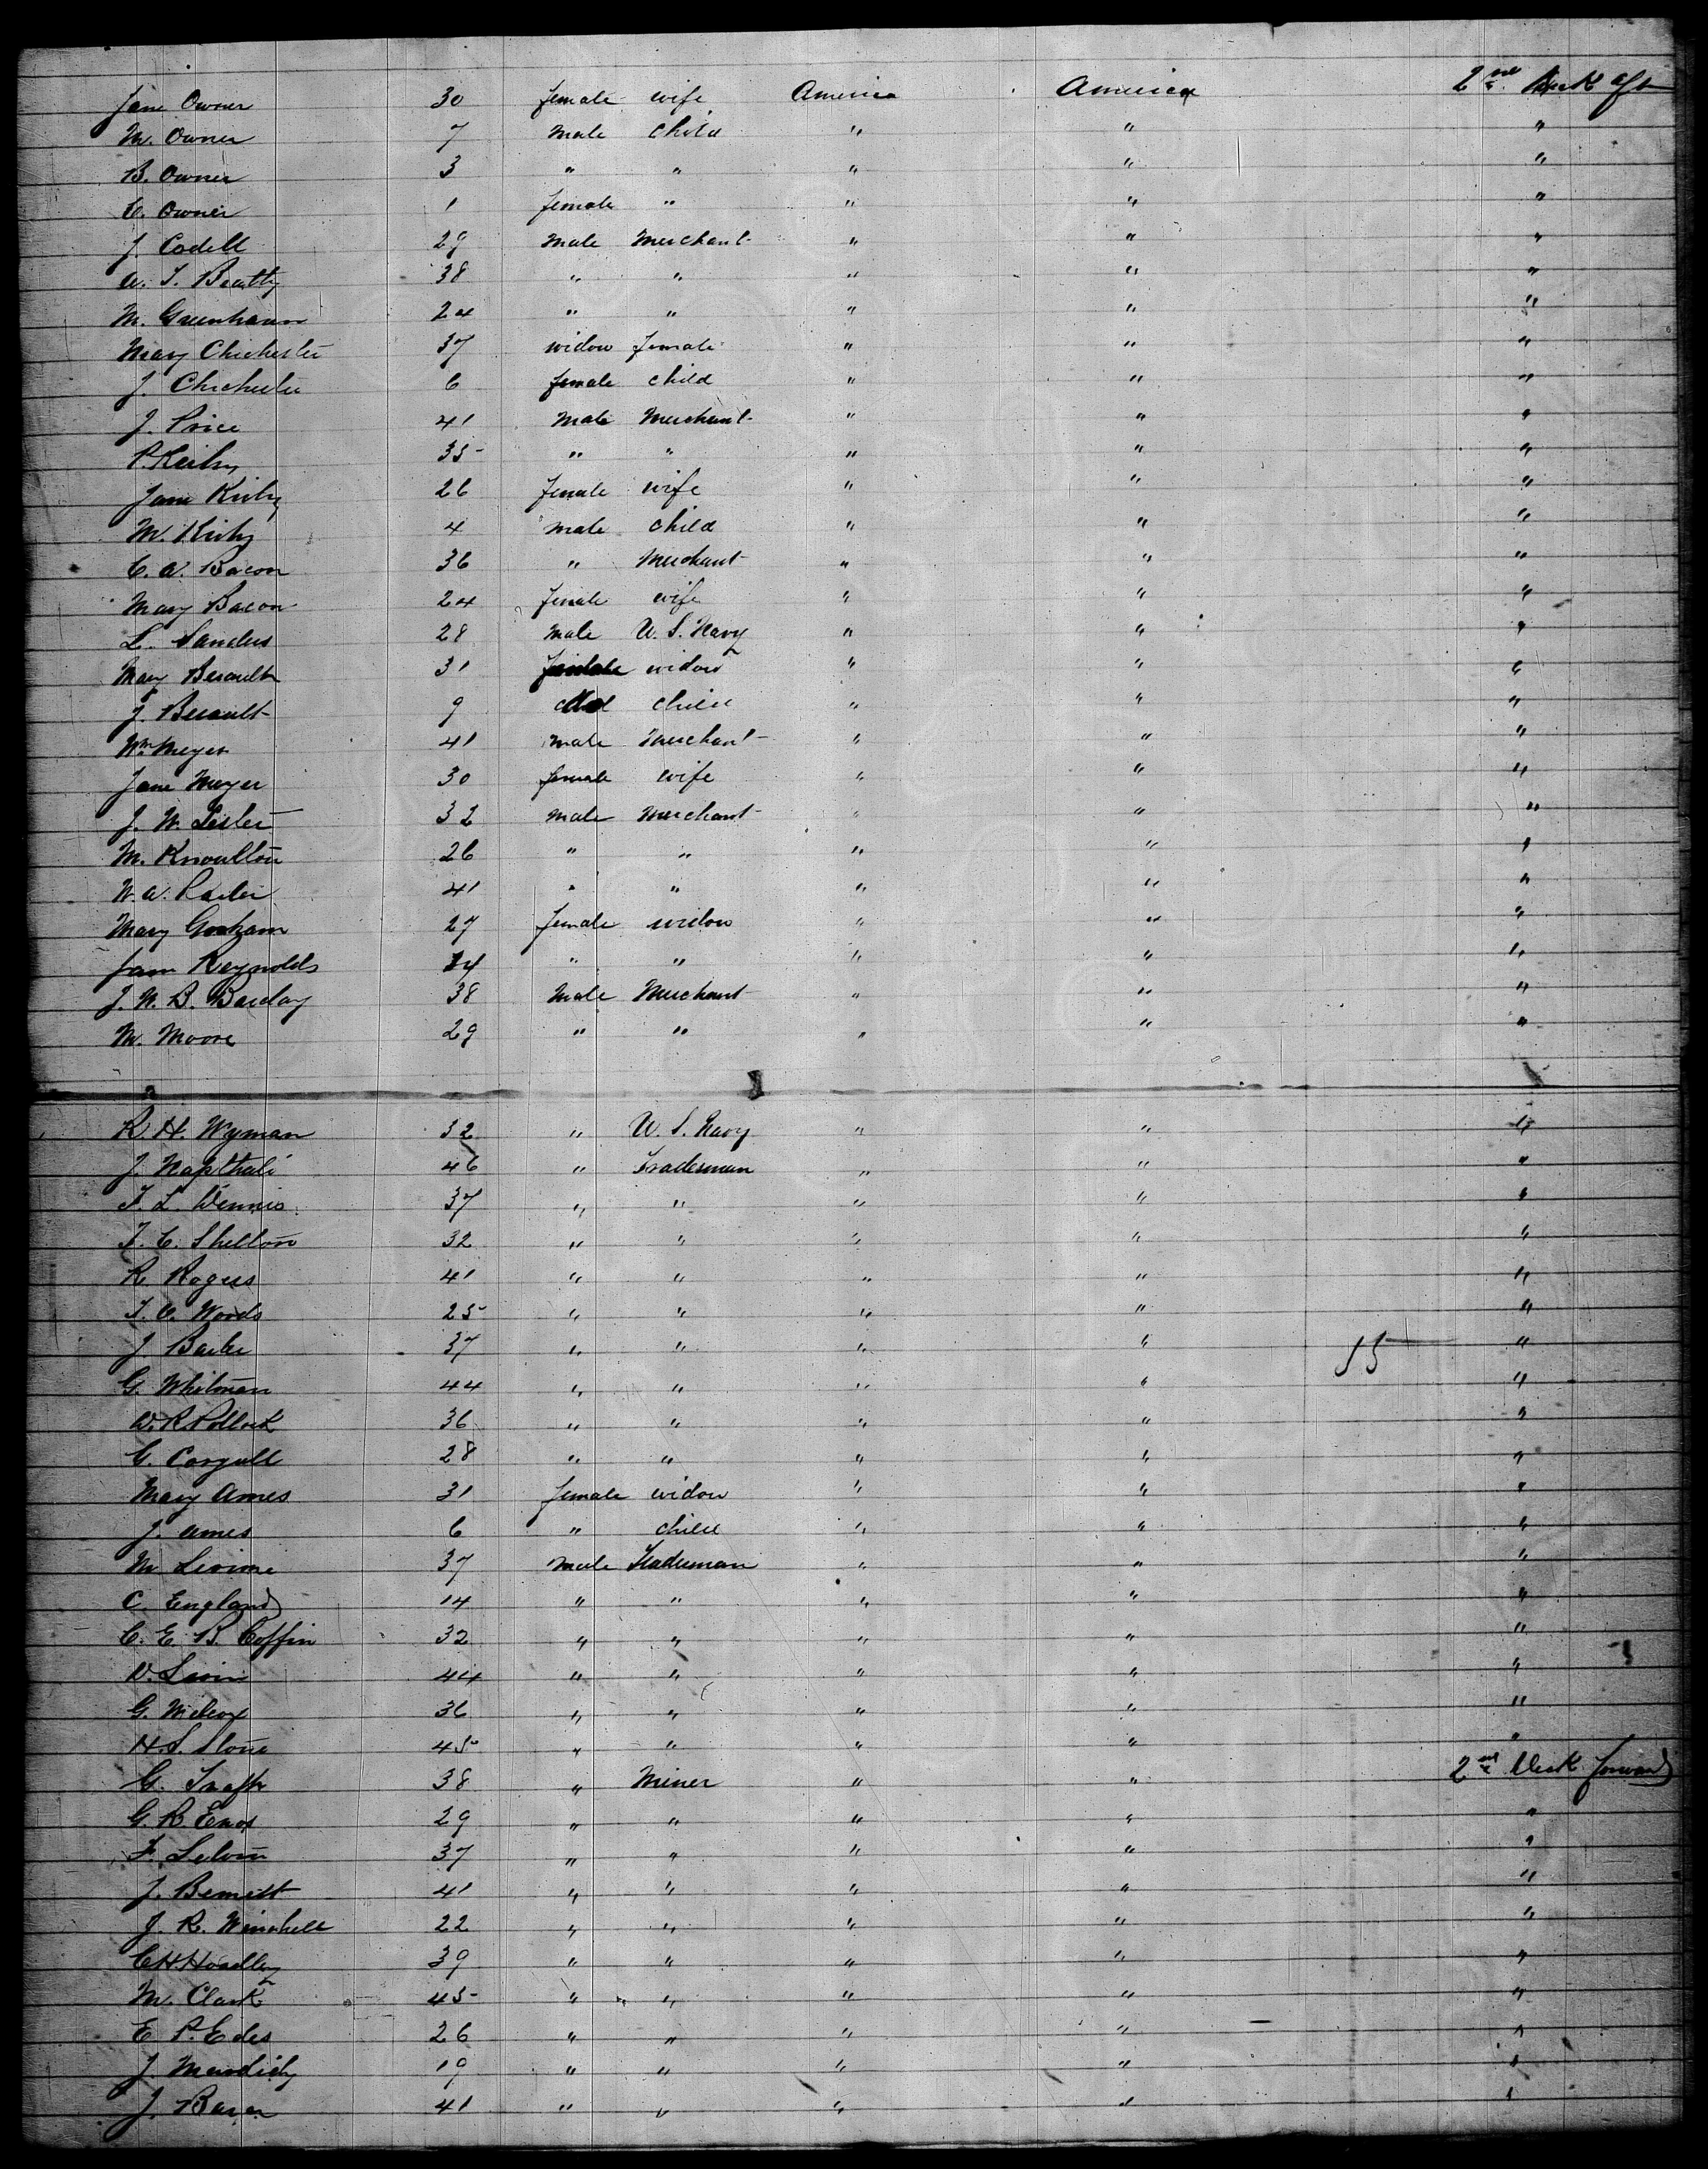 Jane Owner 30 female wife America America 2nd Deck aft
M. Owner 7 male child " " "
B. Owner 3 " " " " "
C. Owner 1 female " " " "
J. Codell 29 male Merchant " " "
A. T. Beatty 38 " " " " "
M. Greenbaum 24 " " " " "
Mary Chichester 37 widow female " " "
J. Chichester 6 female child " " "
J. Price 41 male Merchant " " "
P. Kirby 35 " " " " "
Jane Kirby 26 female wife " " "
M. Kirby 4 male child " " "
C. A. Bacon 36 " Merchant " " "
Mary Bacon 24 female wife " " "
L. Sanders 28 male U. S. Navy " " "
Mary 31 female widow " " "
J. 9 child " " "
Wm Meyer 41 male Merchant " " "
Jane Meyer 30 female wife " " "
J. W. Lester 32 male Merchant " " "
M. Knoulton 26 " " " " "
W. A. 41 " " " " "
Mary Gorham 27 female widow " " "
Jane Reynolds 24 " " " " "
J. W. B. Barclay 38 male Merchant " " "
M. Moore 29 " " " " "
R. H. Wyman 32 " U. S. Navy " " "
J. Napthali 46 " Tradesman " " "
T. L. Dennis 37 " " " " "
T. C. Shelton 32 " " " " "
R. Rogers 41 " " " " "
T. O. Woods 25 " " " " "
J. 37 " " " " 15 "
G. Whitman 44 " " " " "
W. R. Pollock 36 " " " " "
G. Corgell 28 " " " " "
Mary Ames 31 female widow " " "
J. Ames 6 " child " " "
M. 37 male Tradesman " " "
C. England 14 " " " " "
C. E. B. Coffin 32 " " " " "
44 " " " " "
G. Wilcox 36 " " " " "
H. S. Stone 45 " " " " "
G. 38 " Miner " " 2nd Deck forward
G. R. Enos 29 " " " " "
F. 37 " " " " "
J. Bennett 41 " " " " "
J. R. Winchell 22 " " " " "
C H Hoadley 39 " " " " "
M. Clark 45 " " " " "
E P. Edes 26 " " " " "
J. 19 " " " " "
J. 41 " " " " "